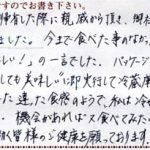 すのでお書き下さい。
帰省した際に親戚から頂き、
ました。今まで食べた事のなかっ
しい！」の一言でした。パッケージ
しても美味しい即実行して冷蔵庫
た違った食感のようで、私は冷
機会があれば又食べてみた
が皆様のご健康を願っております